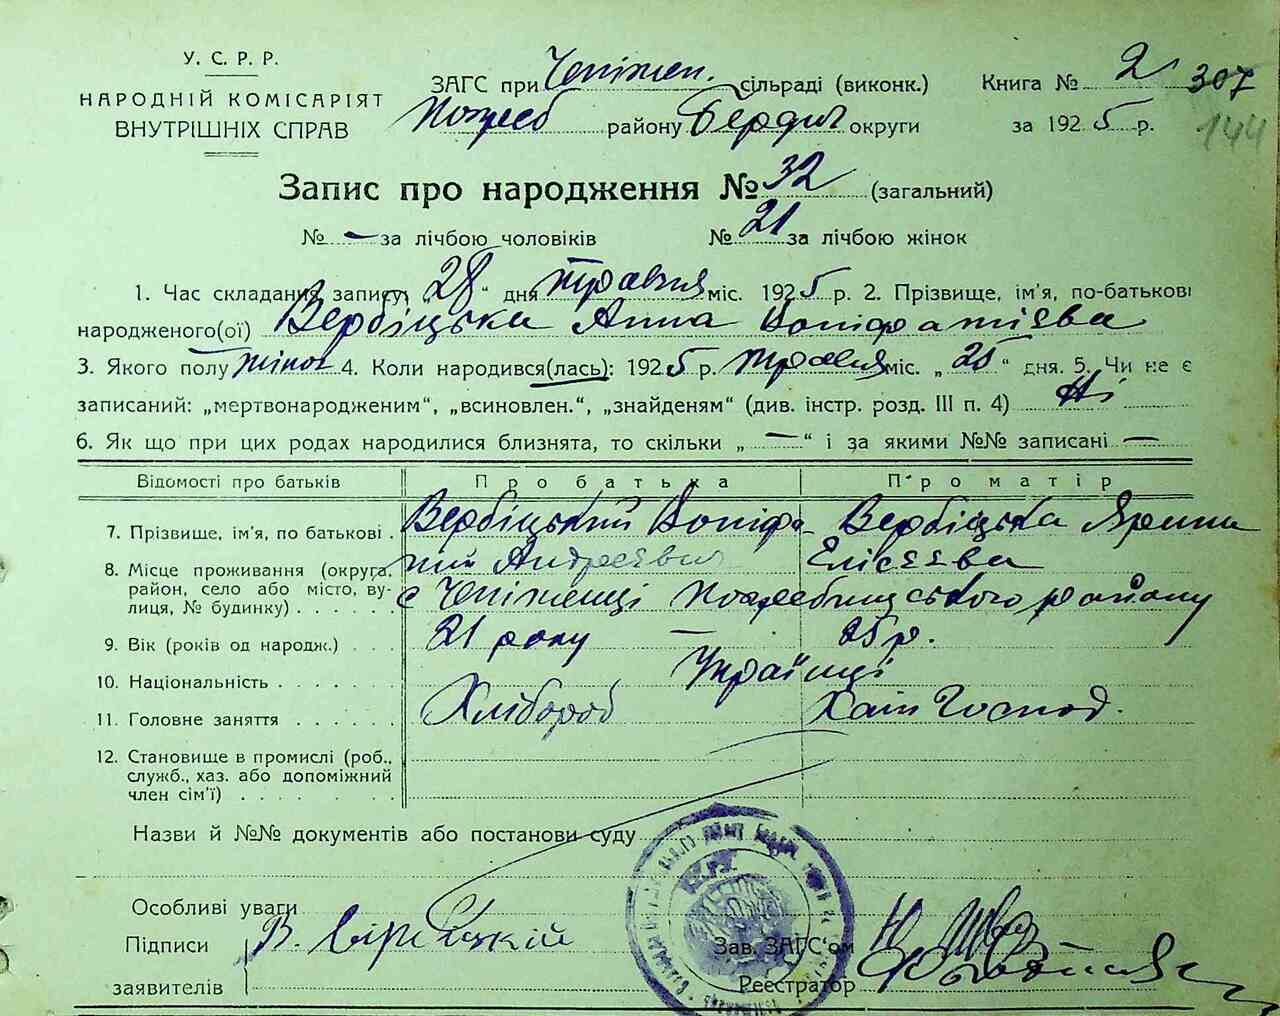 У. С. Р. Р.
НАРОДНІЙ КОМІСАРІЯТ
ВНУТРІШНІХ СПРАВ
ЗАГС при Чепіжен. сільраді (виконк.) Книга № 2 307
Погреб районy Бердич округи за 1925 р. 144
Запис про народження № 32 (загальний)
№ — за лічбою чоловіків № 21 за лічбою жінок
1. Час складання запису „28“ дня травня міс. 1925 р. 2. Прізвище, ім'я, по-батькові
народженого(ої) Вербіцька Анна Воніфатієва
3. Якого полу жіноч 4. Коли народився(лась): 1925 р. травня міс. „25“ дня. 5. Чи не є
записаний: „мертвонародженим“, „всиновлен.“, „знайденям“ (див. інстр. розд. III п. 4) Ні
6. Як що при цих родах народилися близнята, то скільки „—“ і за якими №№ записані —
Відомості про батьків Про батька Про матір
7. Прізвище, ім'я, по батькові . Вербіцький Воніфа- Вербіцька Ярина
тий Андреєвич Елісєєва
8. Місце проживання (округа, район, село або місто, вулиця, № будинку) . . . . . с Чепіженці Погребищського району
9. Вік (років од народж.) . . . 21 року — 25 р.
10. Національність . . . . . . Українці
11. Головне заняття . . . . . . Хлібороб Хатн Господ.
12. Становище в промислі (роб.,
служб., хаз. або допоміжний
член сім'ї) . . . . . . . .
Назви й №№ документів або постанови суду
Особливі уваги
Підписи В. Зав. ЗАГС'ом
заявителів Реєстратор